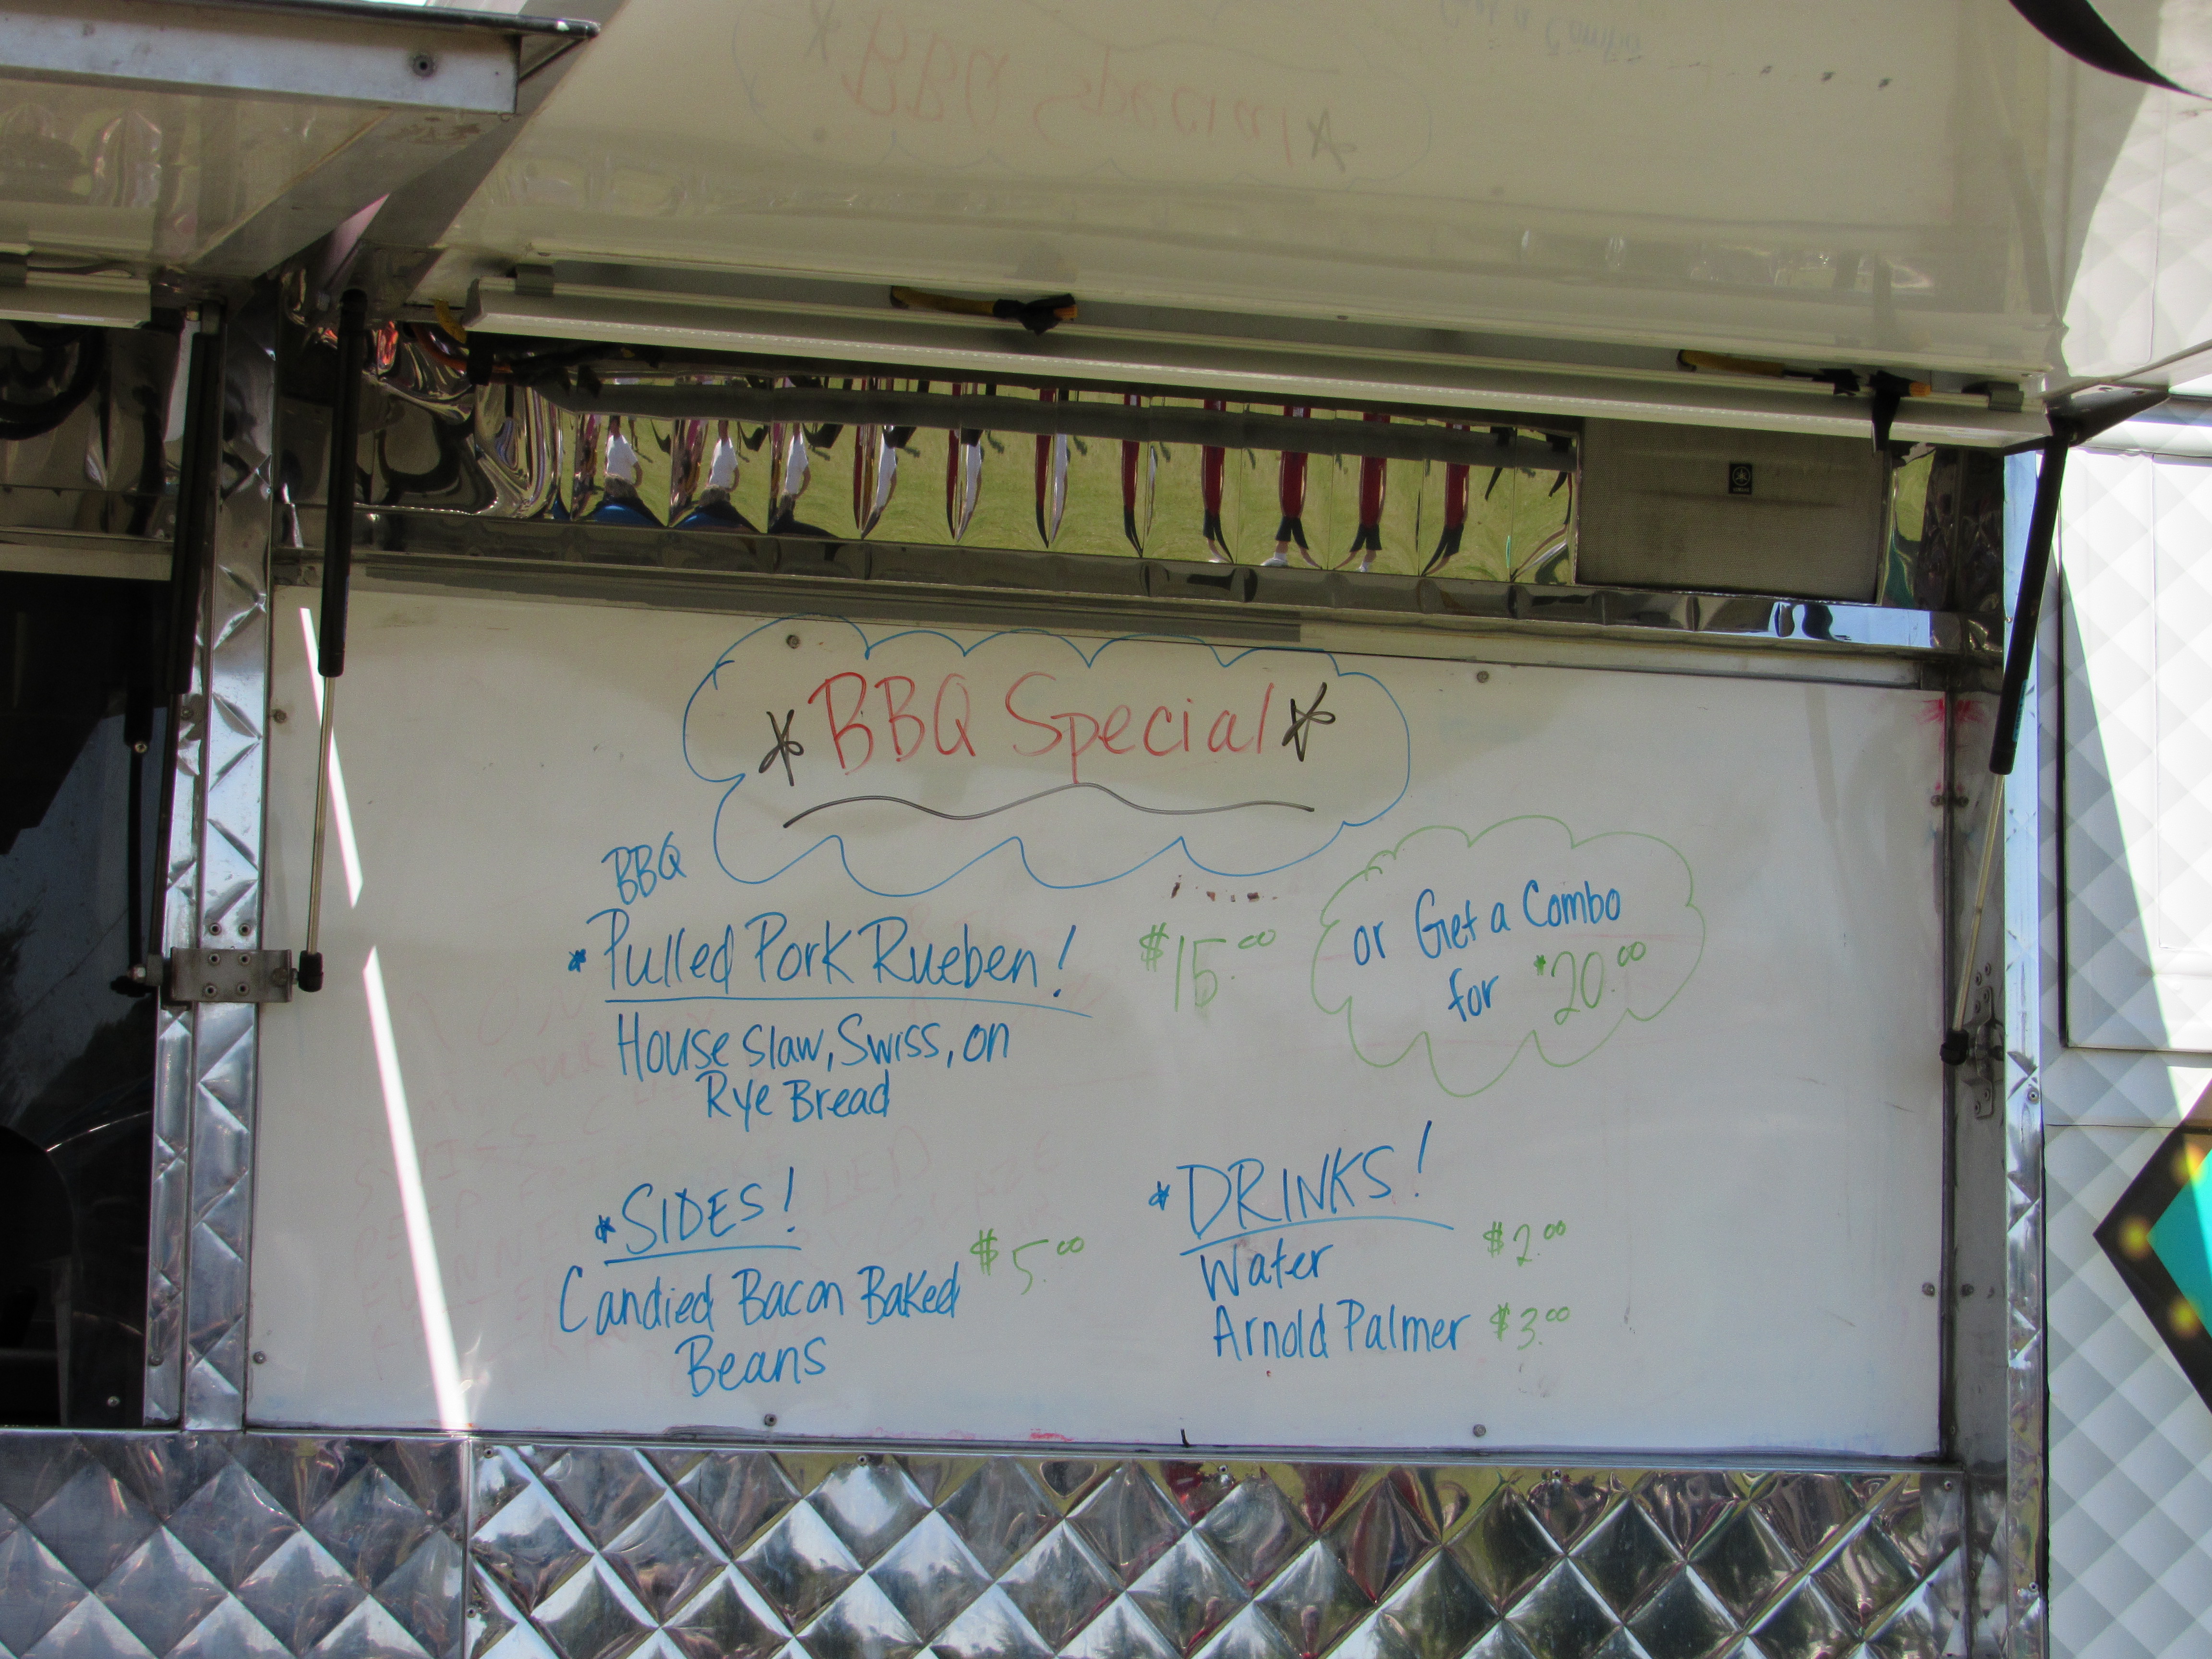 *BBQ Special*
BBQ
*Pulled Pork Rueben! $15.00
House Slaw, Swiss, on
Rye Bread
or Get a Combo
for $20.00
*SIDES!
Candied Bacon Baked $5.00
Beans
*DRINKS!
Water $2.00
Arnold Palmer $3.00